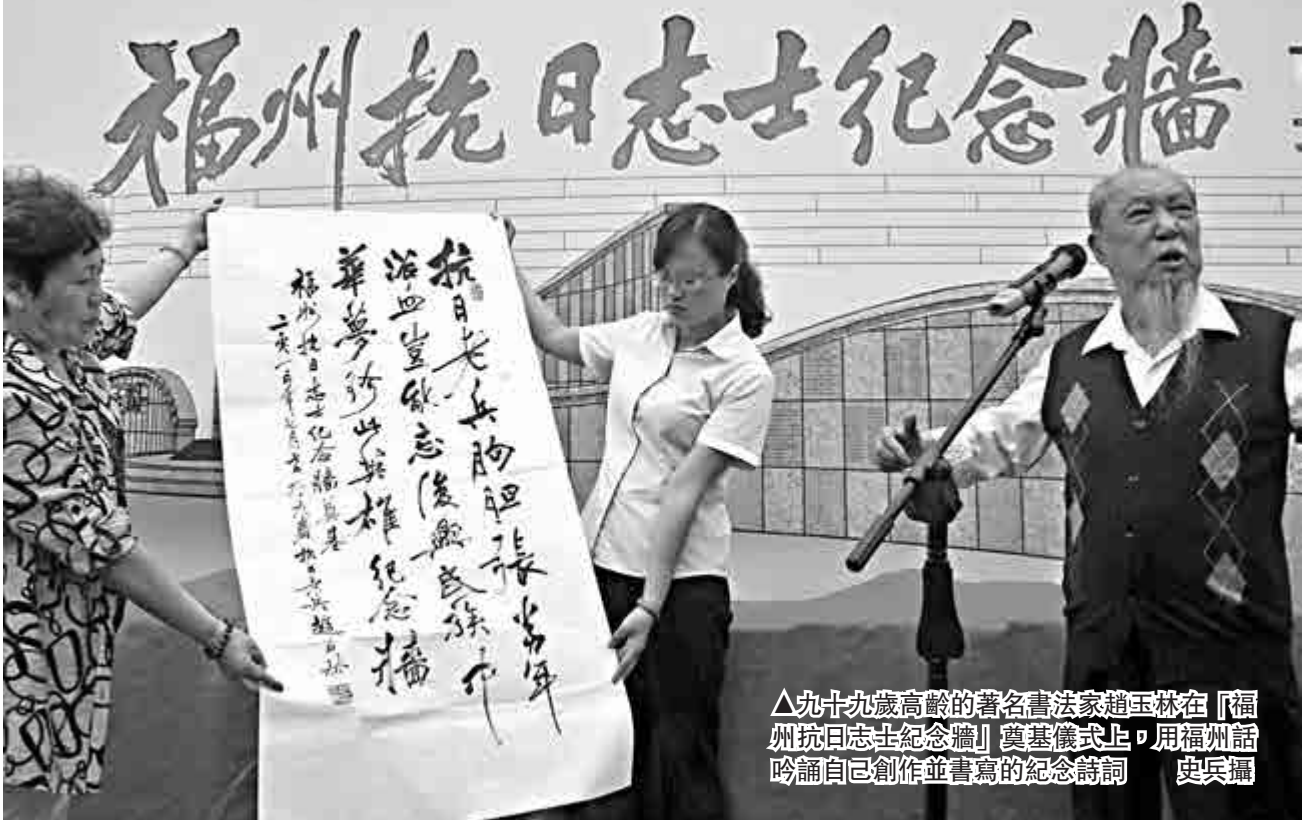 福州抗日志士纪念牆
抗日老兵胸胆張當年
浴血豈能忘復興民族中
華夢 英雄纪念牆
福州抗日志士纪念牆奠基
抗日老兵趙玉林
▲九十九歲高齡的著名書法家趙玉林在「福
州抗日志士紀念牆」奠基儀式上，用福州話
吟誦自己創作並書寫的紀念詩詞　史兵攝